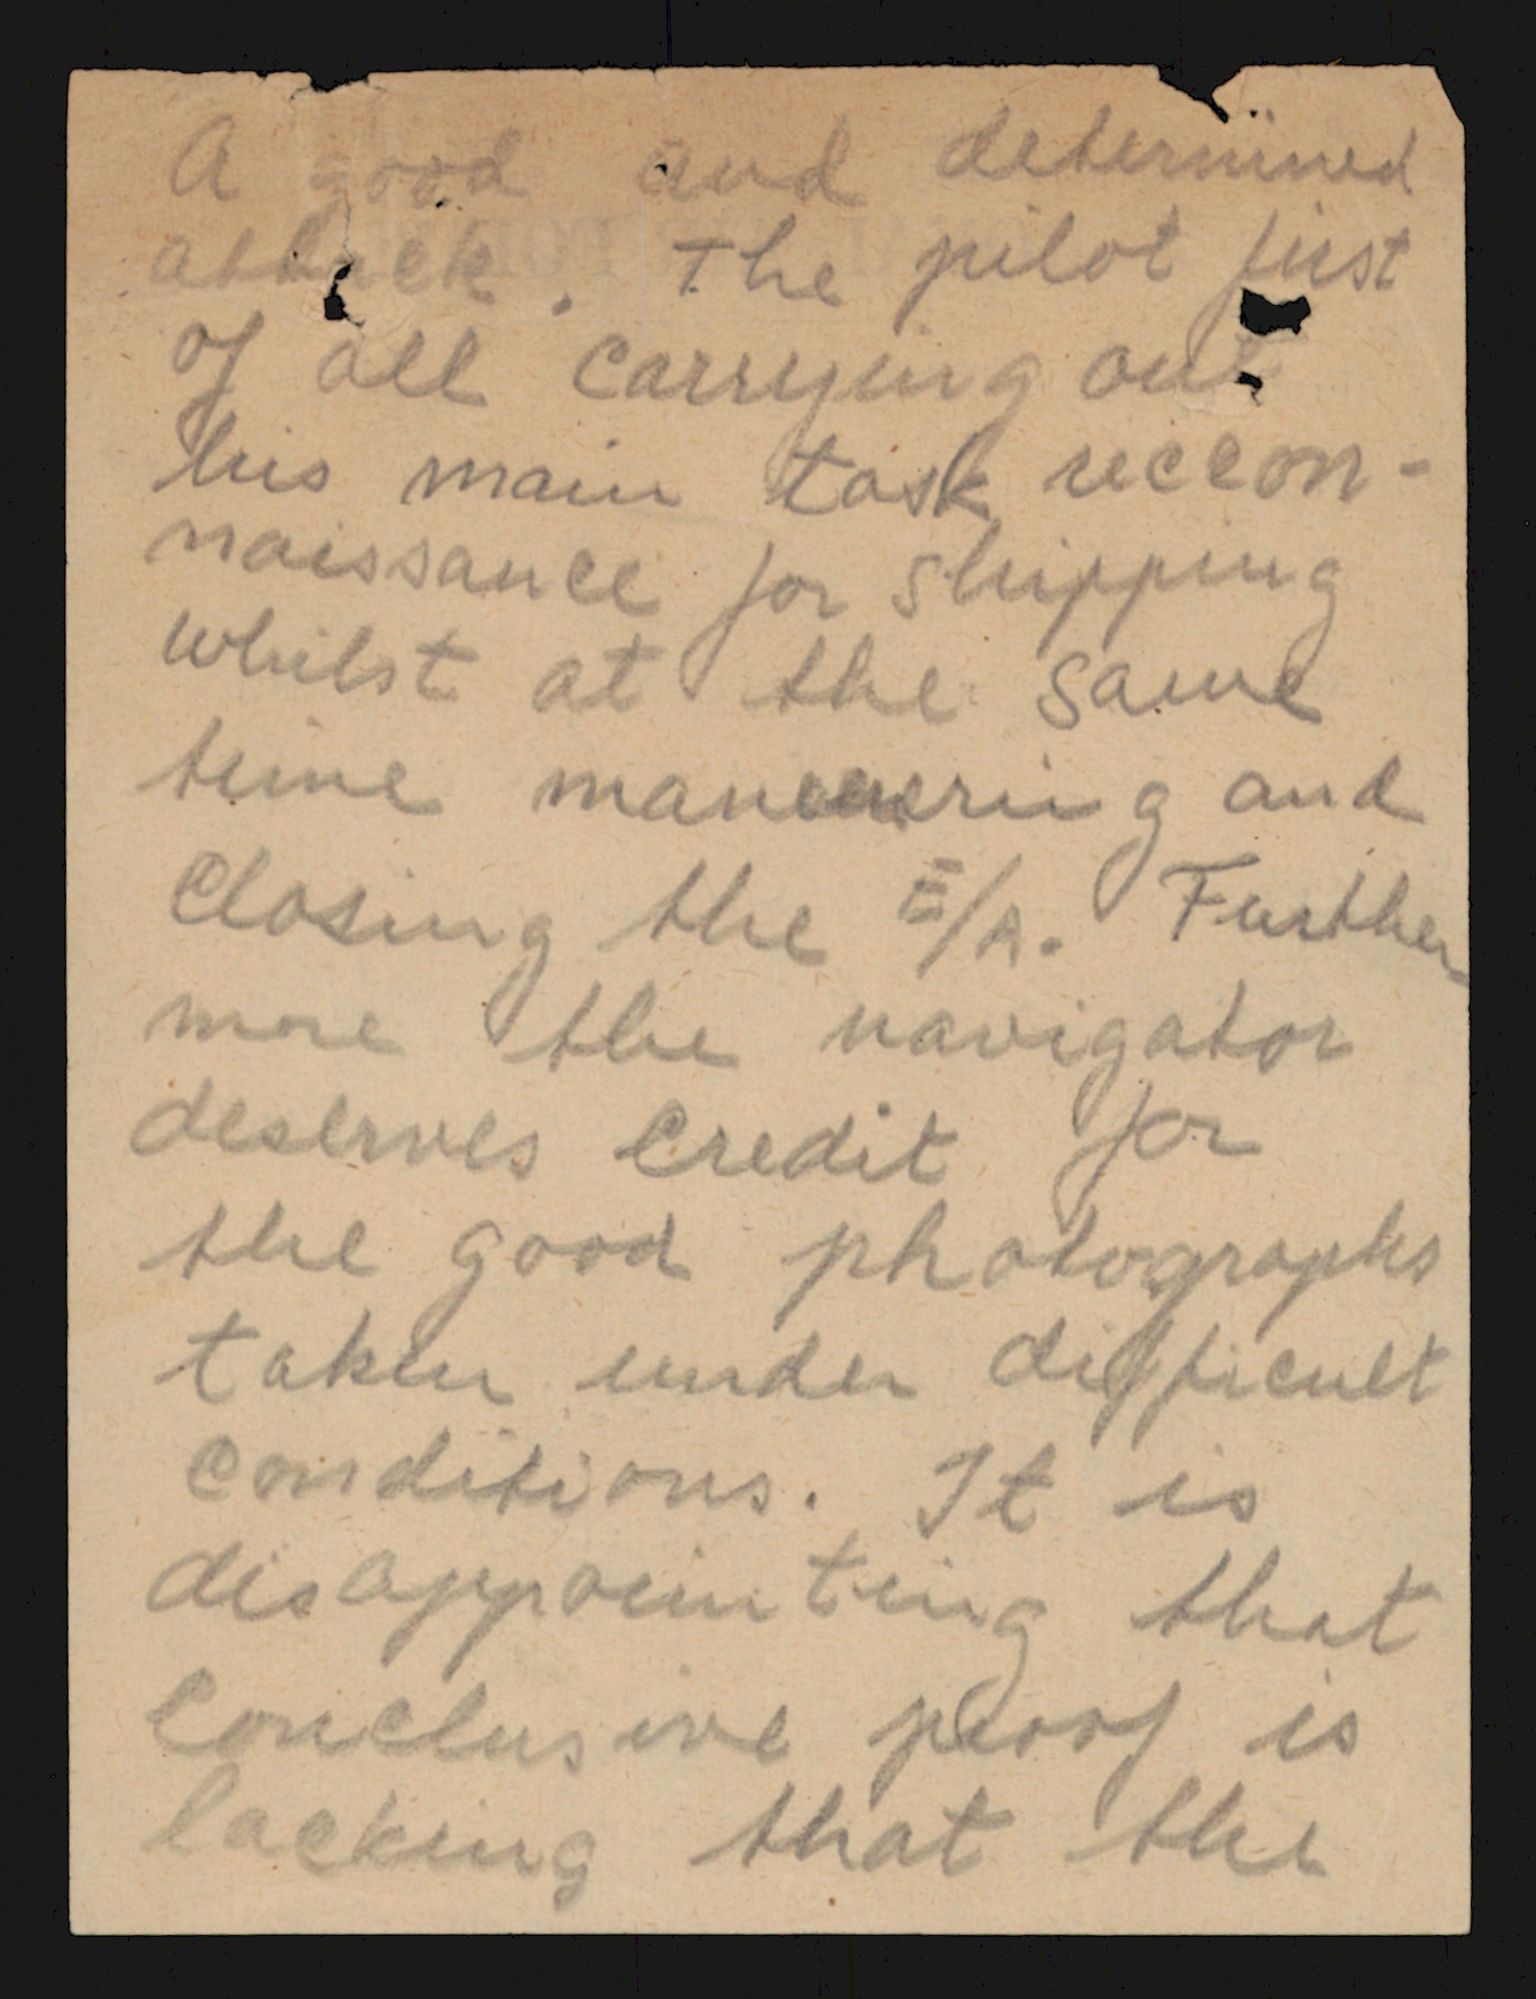 A good and determined
attack. The pilot first
of all carrying out
his main task reccon-
naissance for shipping
whilst at the same
time maneuvering and
closing the E/A. Further
more the navigator
deserves credit for
the good photographs
taken under difficult
conditions. It is
disappointing that
conclusive proof is
lacking that the